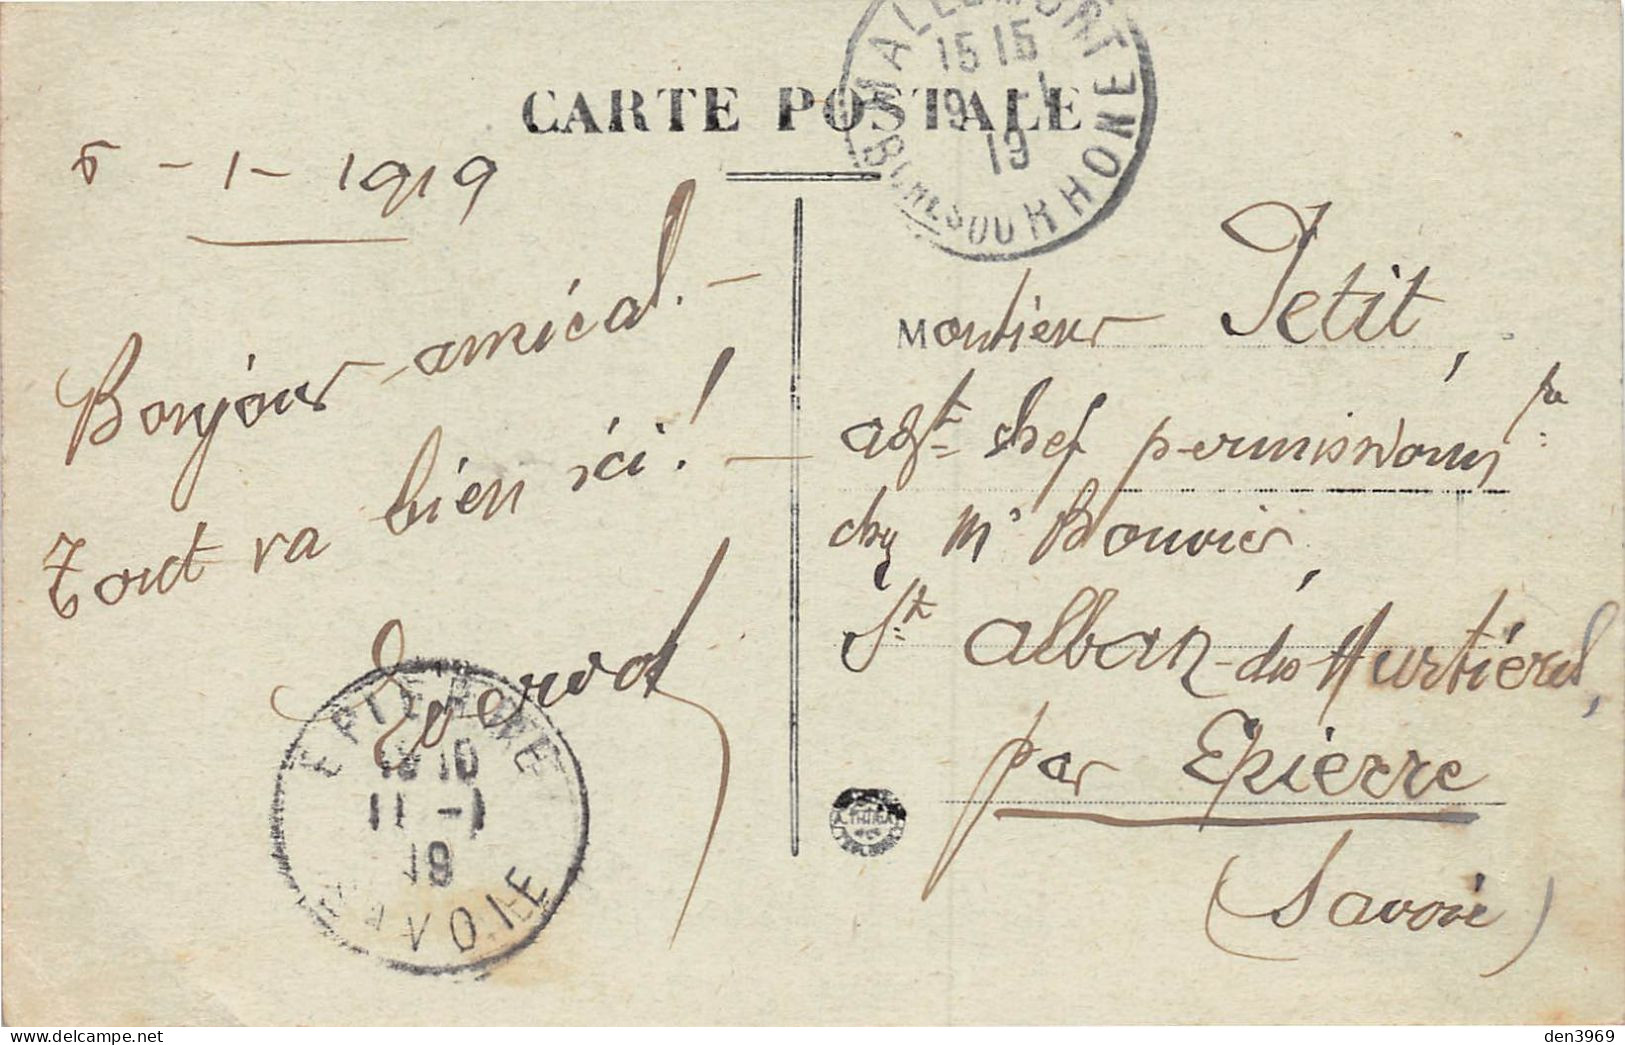 CARTE POSTALE
MALLEMORT
15 15
9 -1
19
BCHES DU RHONE
5 - 1 - 1919
Bonjour amical. -
Tout va bien ici! -
EPIERRE
18 10
11 -1
19
SAVOIE
Monsieur Petit,
adjt chef permissionnre
chez Mr Bouvier,
St Alban-des Hurtières,
par Epierre
(Savoie)
den3969